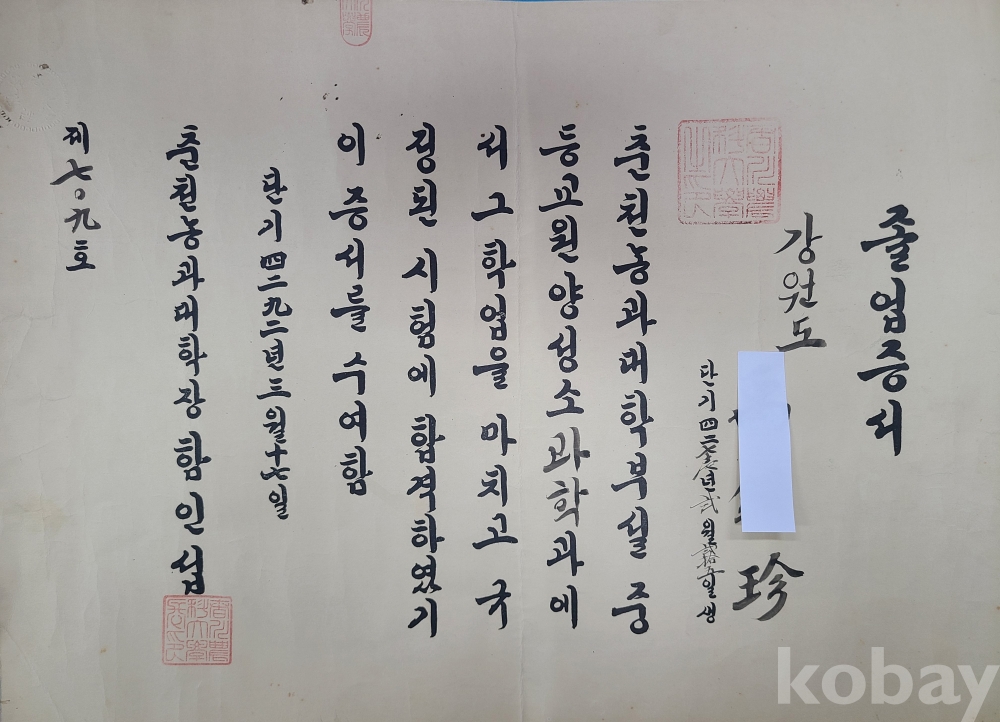 졸업증서
강원도
珍
단기四二 년 월 일생
춘천농과대학부설중
등교원양성소과학과에
서그학업을마치고국
정된시험에합격하였기
이증서를수여함
단기四二九二년三월十七일
춘천농과대학장 함인섭
제七〇九호
kobay